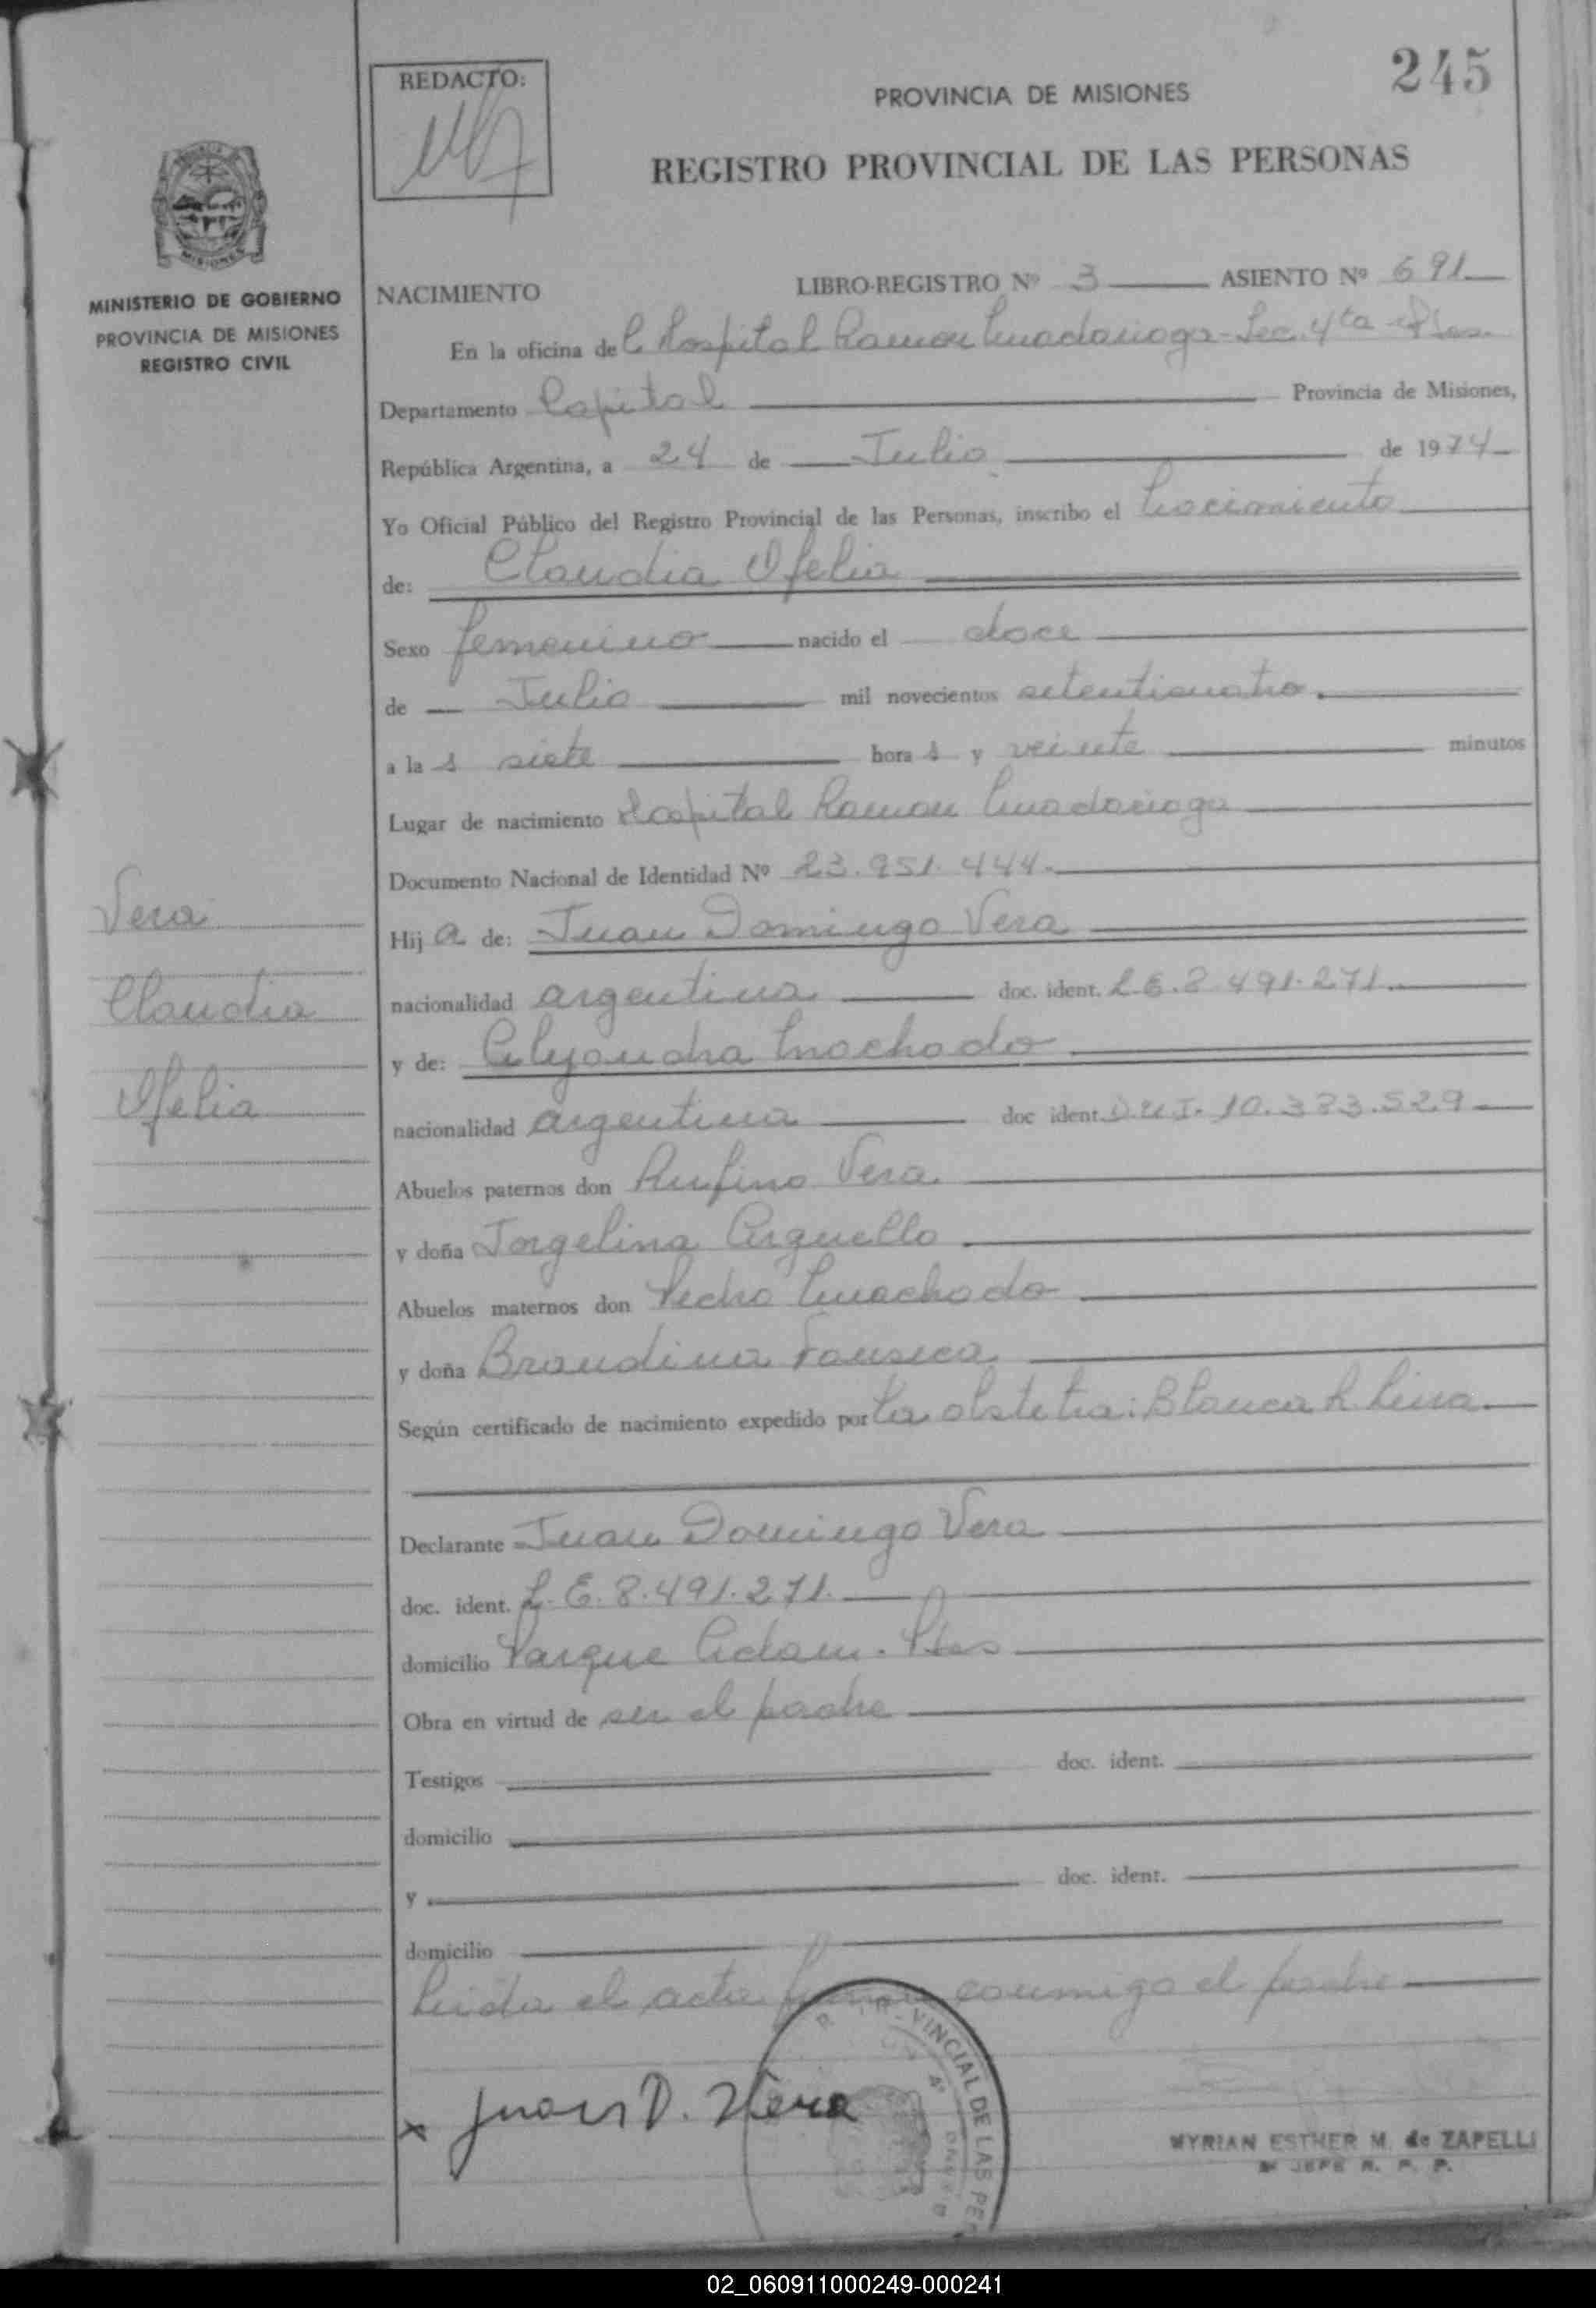 245
REDACTO:
PROVINCIA DE MISIONES
REGISTRO PROVINCIAL DE LAS PERSONAS
MISIONES
MINISTERIO DE GOBIERNO
PROVINCIA DE MISIONES
REGISTRO CIVIL
NACIMIENTO LIBRO-REGISTRO Nº 3 ASIENTO Nº 691
En la oficina del Hospital Ramon Madariaga - Sec. 4ta - Pdas.
Departamento Capital Provincia de Misiones,
República Argentina, a 24 de Julio de 1974
Yo Oficial Público del Registro Provincial de las Personas, inscribo el nacimiento
de: Claudia Ofelia
Sexo femenino nacido el doce
de Julio mil novecientos setenticuatro.
a la s siete hora s y veinte minutos
Lugar de nacimiento Hospital Ramon Madariaga
Documento Nacional de Identidad Nº 23.951.444.
Vera
Claudia
Ofelia
Hij a de: Juan Domingo Vera
nacionalidad argentina doc. ident. L.E.8.491.271.
y de: Alejandra Machado
nacionalidad argentina doc ident. D.N.I. 10.383.529
Abuelos paternos don Rufino Vera.
y doña Jorgelina Arguello
Abuelos maternos don Pedro Machado
y doña Brandina Fonseca
Según certificado de nacimiento expedido por la obstetra: Blanca R. Lima
Declarante Juan Domingo Vera
doc. ident. L.E.8.491.271.
domicilio Parque Adam. Pdas
Obra en virtud de ser el padre
Testigos doc. ident.
domicilio
y doc. ident.
domicilio
Leida el acta firma conmigo el padre
x Juan D. Vera
VINCIAL DE LAS PER
MYRIAN ESTHER M. de ZAPELLI
JEFE R. P. P.
02_060911000249-000241